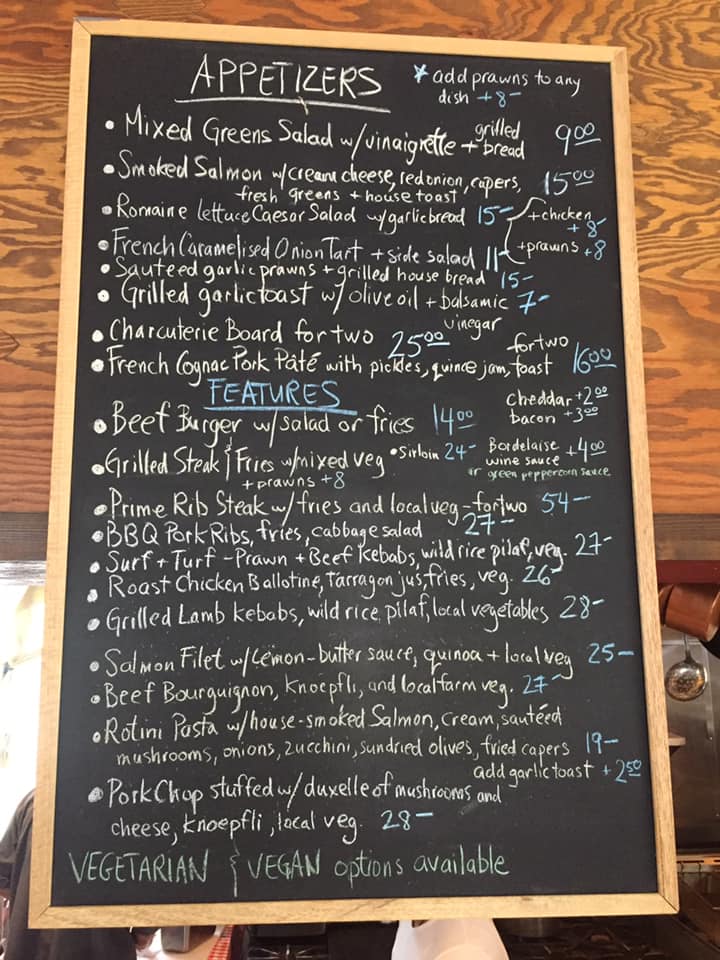 APPETIZERS
* add prawns to any
dish +8-
• Mixed Greens Salad w/vinaigrette + grilled bread 9.00
• Smoked Salmon w/cream cheese, red onion, capers, 15.00
fresh greens + house toast
• Romaine lettuce Caesar Salad w/garlic bread 15-
+chicken +8-
+prawns +8
• French Caramelised Onion Tart + side salad 11-
• Sauteed garlic prawns + grilled house bread 15-
• Grilled garlic toast w/ olive oil + balsamic 7-
vinegar
• Charcuterie Board for two 25.00
• French Cognac Pork Pâté with pickles, quince jam, toast 16.00
for two
FEATURES
• Beef Burger w/salad or fries 14.00
cheddar +2.00
bacon +3.00
• Grilled Steak & Fries w/mixed veg • Sirloin 24-
+ prawns +8
Bordelaise +4.00
wine sauce
or green peppercorn sauce
• Prime Rib Steak w/ fries and local veg - for two 54-
• BBQ Pork Ribs, fries, cabbage salad 27-
• Surf + Turf - Prawn + Beef Kebabs, wild rice pilaf, veg. 27-
• Roast Chicken Ballotine, tarragon jus, fries, veg. 26-
• Grilled Lamb kebabs, wild rice, pilaf, local vegetables 28-
• Salmon Filet w/Lemon-butter sauce, quinoa + local veg 25-
• Beef Bourguignon, knoepfli, and local farm veg. 27-
• Rotini Pasta w/house-smoked Salmon, cream, sautéed
mushrooms, onions, zucchini, sundried olives, fried capers 19-
add garlic toast +2.50
• Pork Chop stuffed w/ duxelle of mushrooms and
cheese, knoepfli, local veg. 28-
VEGETARIAN & VEGAN options available